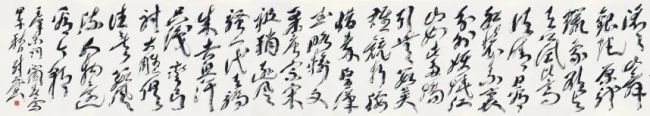 滔滔山舞
银蛇原驰
蜡象欲与
天公试比高
须晴日看
红装素裹
分外妖娆江
山如此多娇
引无数英
雄竞折腰
惜秦皇汉
武略输文
采唐宗宋
祖稍逊风
骚一代天骄
成吉思汗
只识弯弓
射大雕俱
往矣数风
流人物还
看今朝